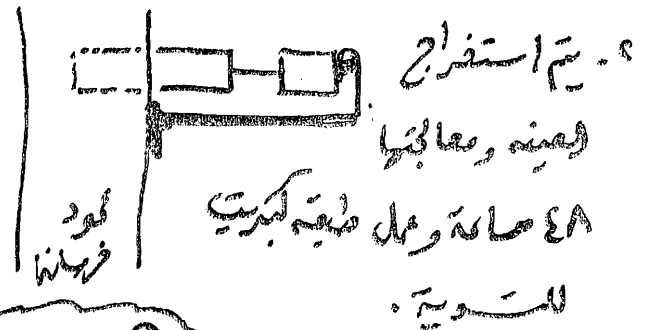 ٢- يتم استخراج
العينه ومعالجتها
٤٨ ساعة وعمل طبقه كبريت
للتسوية .
عمود
خرسانة